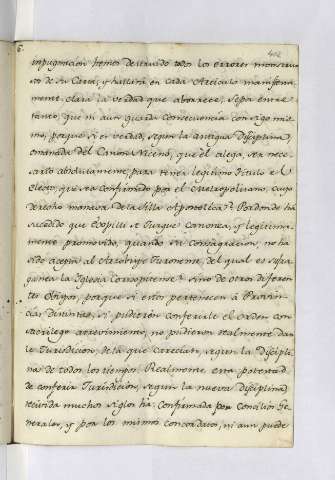 6.
402
impugnacion hemos destruido todos los errores monstruo
de su Carta, y hallará en cada Articulo manifiesta
mente clara la verdad que aborrece, sepa entre
tanto, que ni aun guarda Consecuencia consigo mis
mo, porque si es verdad, segun la antigua Disciplina,
emanada del Canon Niceno, que él alega, ser nece
sario absolutamente, para tener legitimo titulo el
Electo, que sea Confirmado por el Metropolitano, cuyo
derecho manava de la Silla Apostolica? Por donde ha
sucedido que Expilli se juzgue Canonica, y legitima
mente promovido, quando su Consagracion, no ha
sido acepta al Arzobispo Turonense, del qual es sufra
ganea la Iglesia Corisopitense? sino de otros diferen
tes Obispos, porque si estos pertenecen á Provin
cias distintas, si pudieron conferirle el Orden con
sacrilego atrevimiento, no pudieron realmente dar
le Jurisdicion, de la que carecian, segun la Discipli
na de todos los tiempos. Realmente esta potestad
de conferir Jurisdicion, segun la nueva disciplina,
recivida muchos siglos há: Confirmada por Concilios Ge
nerales, y por los mismos concordatos, ni aun puede